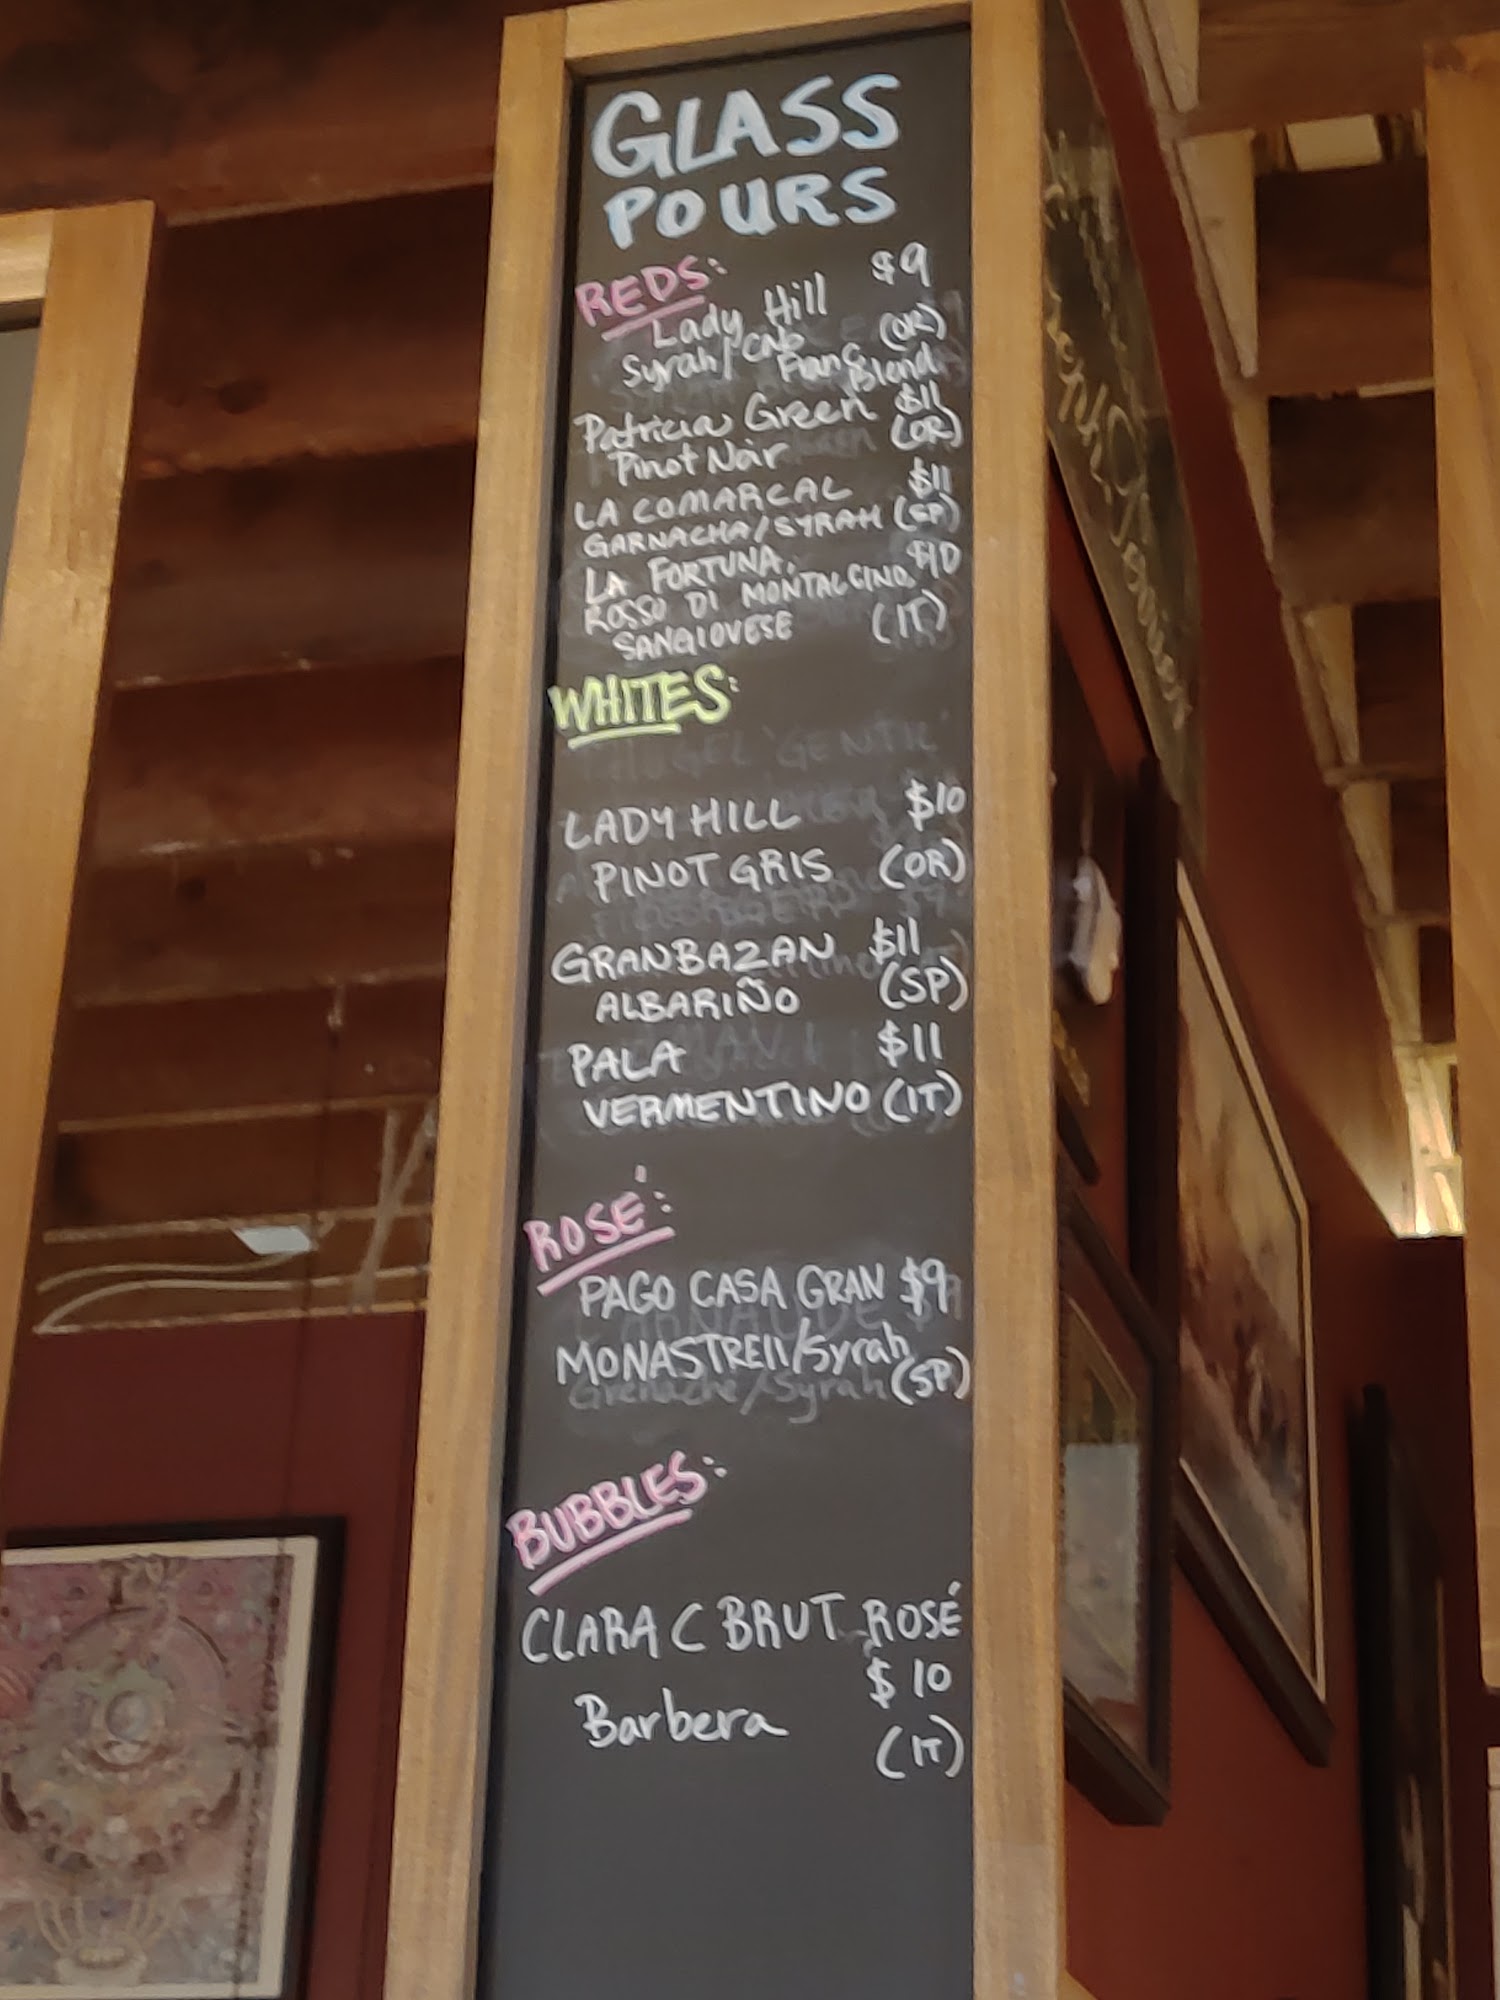 GLASS
POURS
REDS:
Lady Hill $9
Syrah/Cab (OR)
Franc Blend
Patricia Green $11
Pinot Noir (OR)
LA COMARCAL $11
GARNACHA/SYRAH (SP)
LA FORTUNA. $10
ROSSO DI MONTALCINO.
SANGIOVESE (IT)
WHITES:
LADY HILL $10
PINOT GRIS (OR)
GRANBAZAN $11
ALBARIÑO (SP)
PALA $11
VERMENTINO (IT)
ROSÉ:
PAGO CASA GRAN $9
MONASTRELL/Syrah
Grenache/Syrah (SP)
BUBBLES:
CLARA C BRUT ROSÉ
$10
Barbera
(IT)